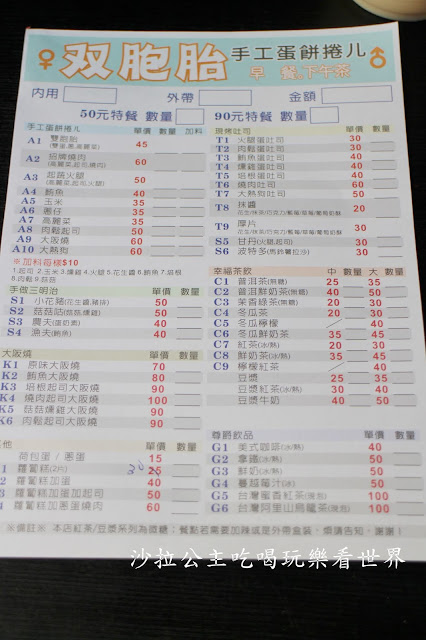 双胞胎 手工蛋餅捲儿
早 餐.下午茶
內用 外帶 金額
50元特餐 數量 90元特餐 數量
手工蛋餅捲儿 單價 數量 加料
A1 雙胞胎 45
A2 招牌燒肉 60
(高麗菜,起司,燒肉)
A3 起蔬火腿 50
(高麗菜,起司,火腿)
A4 鮪魚 40
A5 玉米 35
A6 蔥仔 35
A7 高麗菜 35
A8 肉鬆起司 50
A9 大阪燒 60
A10 大熱狗 60
※加料每樣$10
手做三明治 單價 數量
S1 小花豬(花生醬,豬排) 50
S2 菇菇咕(菇菇,燻雞) 50
S3 農夫(蛋奶素) 40
S4 漁夫(鮪魚) 40
大阪燒 單價 數量
K1 原味大阪燒 70
K2 鮪魚大阪燒 80
K3 培根起司大阪燒 90
K4 燒肉起司大阪燒 100
K5 菇菇燻雞大阪燒 90
K6 肉鬆起司大阪燒 90
其他 單價 數量
荷包蛋 / 蔥蛋 15
1 蘿蔔糕(2片) 30 25
2 蘿蔔糕加蛋 40
3 蘿蔔糕加蛋加起司 50
4 蘿蔔糕加蛋加燒肉 60
現烤吐司 單價 數量
T1 火腿蛋吐司 30
T2 肉鬆蛋吐司 30
T3 鮪魚蛋吐司 40
T4 燻雞蛋吐司 40
T5 培根蛋吐司 40
T6 燒肉吐司 60
T7 大熱狗吐司 50
T8 抹醬 20
花生/抹茶/巧克力/藍莓/草莓/葡萄奶酥
T9 厚片 30
花生/抹茶/巧克力/藍莓/草莓/葡萄奶酥
S5 甘丹(火腿,起司) 30
S6 波特多(馬鈴薯拉沙) 30
幸福茶飲 中 數量 大 數量
C1 普洱茶(無糖) 25 35
C2 普洱鮮奶茶(無糖) 40 50
C3 茉香綠茶(無糖) 20 30
C4 冬瓜茶 20 30
C5 冬瓜檸檬 / 40
C6 冬瓜鮮奶茶 35 45
C7 紅茶(冰/熱) 20 30
C8 鮮奶茶(冰/熱) 35 45
C9 檸檬紅茶 / 40
豆漿 25 35
豆漿紅茶(冰/熱) 30 40
豆漿牛奶 40 50
尊爵飲品 單價 數量
G1 美式咖啡(冰/熱) 40
G2 拿鐵(冰/熱) 50
G3 鮮奶(冰/熱) 50
G4 蔓越莓汁(冰) 50
G5 台灣蜜香紅茶(現泡) 100
G6 台灣阿里山烏龍茶(現泡) 100
※備註※ 本店紅茶/豆漿系列為微糖;餐點若需要加辣或是外帶盒裝,煩請告知,謝謝!
沙拉公主吃喝玩樂看世界